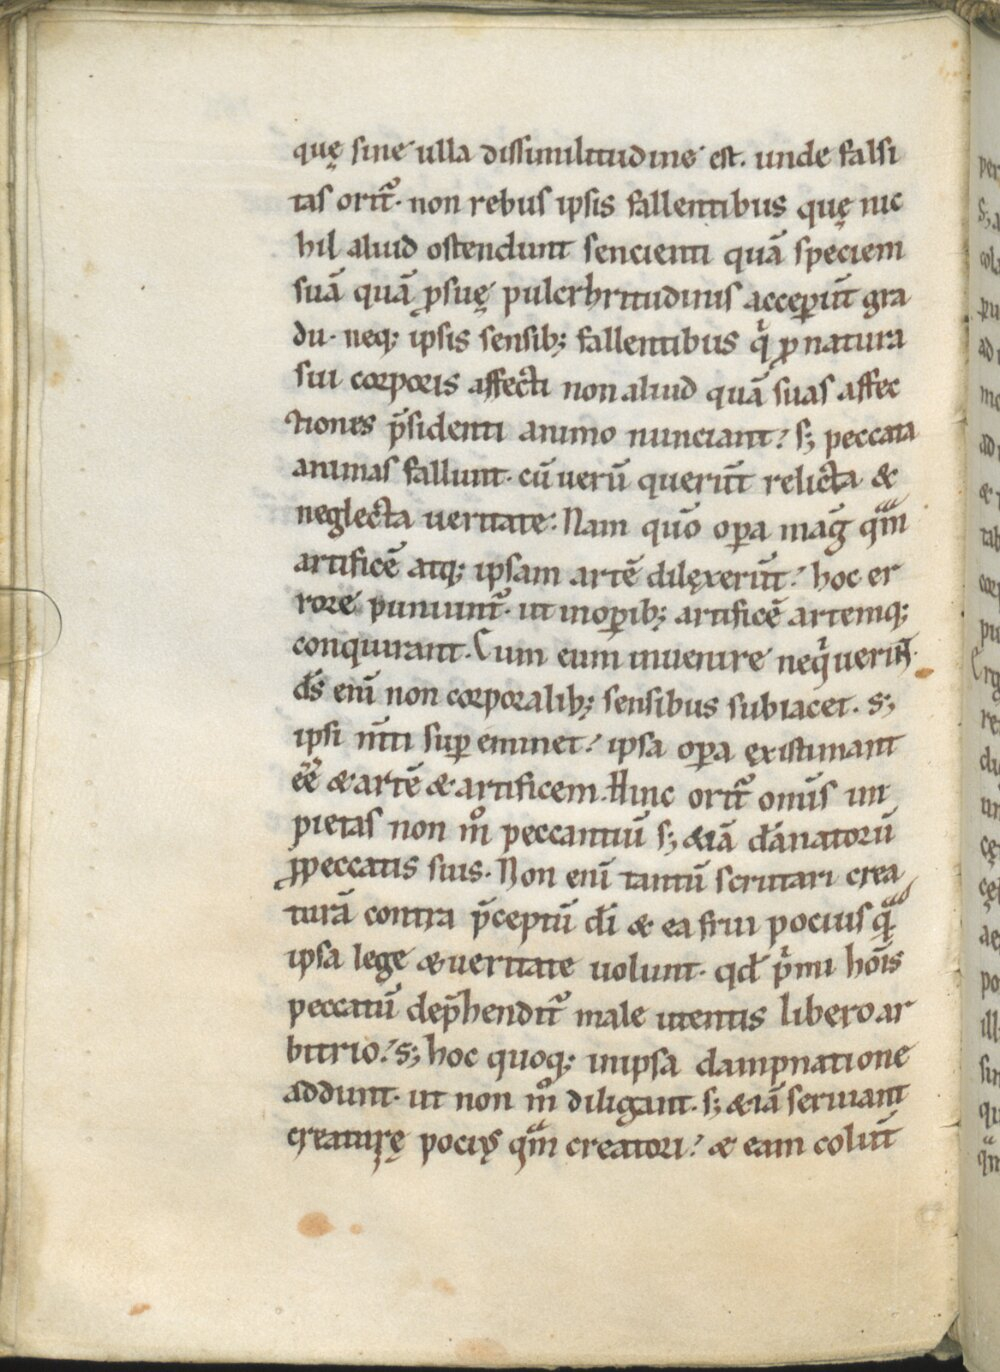 quę sine ulla dissimilitudine est. unde falsi
tas orit᷒. non rebus ipsis fallentibus quę nic
hil aliud ostendunt sencienti quā speciem
suā quā ꝓ suę pulcrhritudinis acceꝑiūt gra
du. neq; ipsis sensib; fallentibus qͥ ꝓ natura
sui corporis affecti non aliud quā suas affec
tiones p̄sidenti animo nunciant? s; peccata
animas fallunt. cū uerū queriūt relicta &
neglecta ueritate. Nam quō oꝑa maḡ qͣm
artificē atq; ipsam artē dilęxerūt? hoc er
rore puniunt᷒. ut in oꝑib; artificē artemq;
conquirant. Cum eum inuenire neqͥuerint.
ds̄ enī non corporalib; sensibus subiacet. s;
ipsi m̄ti suꝑ eminet? ipsa oꝑa ęxistimant
ee̅ & artē & artificem. Hinc orit᷒ omīs im
pietas non mͦ peccantiū s; &iā dānatorū
ꝓ peccatis suis. Non enī tantū scrutari crea
turā contra p̄ceptū dī & ea frui pocius qͣ̄
ipsa lege & ueritate uolunt. qd̄ pͥmi hoīs
peccatū dep̄hendit᷒ male utentis libero ar
bitrio? s; hoc quoq; in ipsa dampnatione
addunt. ut non mͦ diligant. s; &iā seruiant
creaturę pociꝰ qͣm creatori? & eam colūt